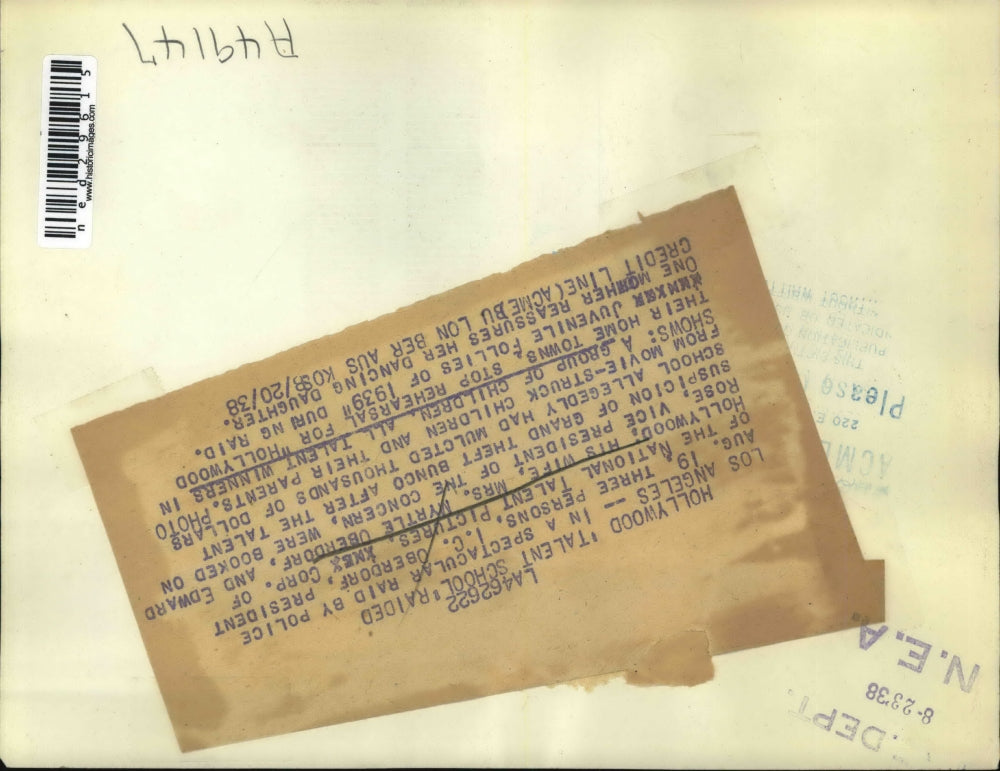 A49147
ned29615
www.historicimages.com
LA462622
HOLLYWOOD 'TALENT SCHOOL' RAIDED
LOS ANGELES -- IN A SPECTACULAR RAID BY POLICE
AUG. 19 THREE PERSONS, I.C. OBERDORF, PRESIDENT
OF THE NATIONAL TALENT PICTURES CORP. OF
HOLLYWOOD, HIS WIFE, MRS. MYRTLE OBERDORF, AND EDWARD
ROSE, VICE PRESIDENT OF THE CONCERN, WERE BOOKED ON
SUSPICION OF GRAND THEFT BUNCO AFTER THE TALENT
SCHOOL ALLEGEDLY HAD MULCTED THOUSANDS OF DOLLARS
FROM MOVIE-STRUCK CHILDREN AND THEIR PARENTS. PHOTO
SHOWS: A GROUP OF CHILDREN, ALL TALENT WINNERS IN
THEIR HOME TOWNS, STOP REHEARSAL FOR "HOLLYWOOD
JUVENILE FOLLIES OF 1939" DURING RAID.
ONE MOTHER REASSURES HER DANCING DAUGHTER.
CREDIT LINE (ACME) BU LON BER AUS KOS 8/20/38
ACME
220 E
Please
N.E.A.
8-23'38
DEPT.